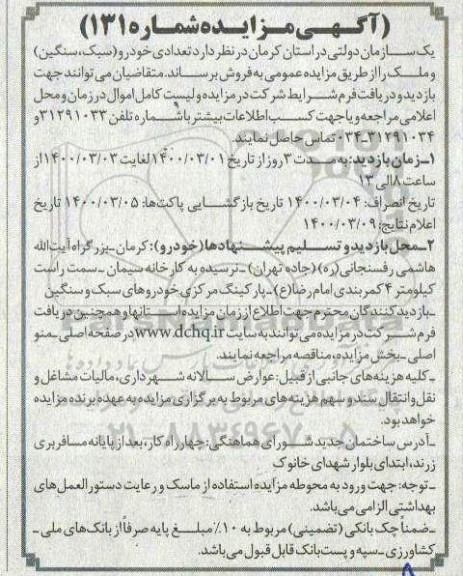 (آگهی مزایده شماره ۱۳۱)
یک سازمان دولتی در استان کرمان در نظر دارد تعدادی خودرو (سبک، سنگین)
و ملک را از طریق مزایده عمومی به فروش برساند. متقاضیان می توانند جهت
بازدید و دریافت فرم شرایط شرکت در مزایده و لیست کامل اموال در زمان و محل
اعلامی مراجعه و یا جهت کسب اطلاعات بیشتر با شماره تلفن ۳۱۲۹۱۰۳۳ و
۰۳۴-۳۱۲۹۱۰۳۴ تماس حاصل نمایند.
۱ـ زمان بازدید: به مدت ۳ روز از تاریخ ۱۴۰۰/۰۳/۰۱ لغایت ۱۴۰۰/۰۳/۰۳ از
ساعت ۸ الی ۱۳
تاریخ انصراف: ۱۴۰۰/۰۳/۰۴ تاریخ بازگشایی پاکت ها: ۱۴۰۰/۰۳/۰۵ تاریخ
اعلام نتایج: ۱۴۰۰/۰۳/۰۹
۲ـ محل بازدید و تسلیم پیشنهادها (خودرو): کرمان ـ بزرگراه آیت الله
هاشمی رفسنجانی (ره) (جاده تهران) ـ نرسیده به کارخانه سیمان ـ سمت راست
کیلومتر ۴ کمربندی امام رضا (ع) ـ پارکینگ مرکزی خودروهای سبک و سنگین
ـ بازدید کنندگان محترم جهت اطلاع از زمان مزایده استانها و همچنین دریافت
فرم شرکت در مزایده می توانند به سایت www.dchq.ir در صفحه اصلی ـ منو
اصلی ـ بخش مزایده، مناقصه مراجعه نمایند.
ـ کلیه هزینه های جانبی از قبیل: عوارض سالانه شهرداری، مالیات مشاغل و
نقل و انتقال سند و سهم هزینه های مربوط به برگزاری مزایده به عهده برنده مزایده
خواهد بود.
ـ آدرس ساختمان جدید شورای هماهنگی: چهارراه کار، بعد از پایانه مسافربری
زرند، ابتدای بلوار شهدای خانوک
ـ توجه: جهت ورود به محوطه مزایده استفاده از ماسک و رعایت دستورالعمل های
بهداشتی الزامی می باشد.
ـ ضمناً چک بانکی (تضمینی) مربوط به ۱۰٪ مبلغ پایه صرفاً از بانک های ملی ـ
کشاورزی ـ سپه و پست بانک قابل قبول می باشد.